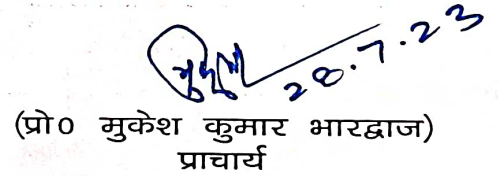 28.7.23
(प्रो0 मुकेश कुमार भारद्वाज)
प्राचार्य